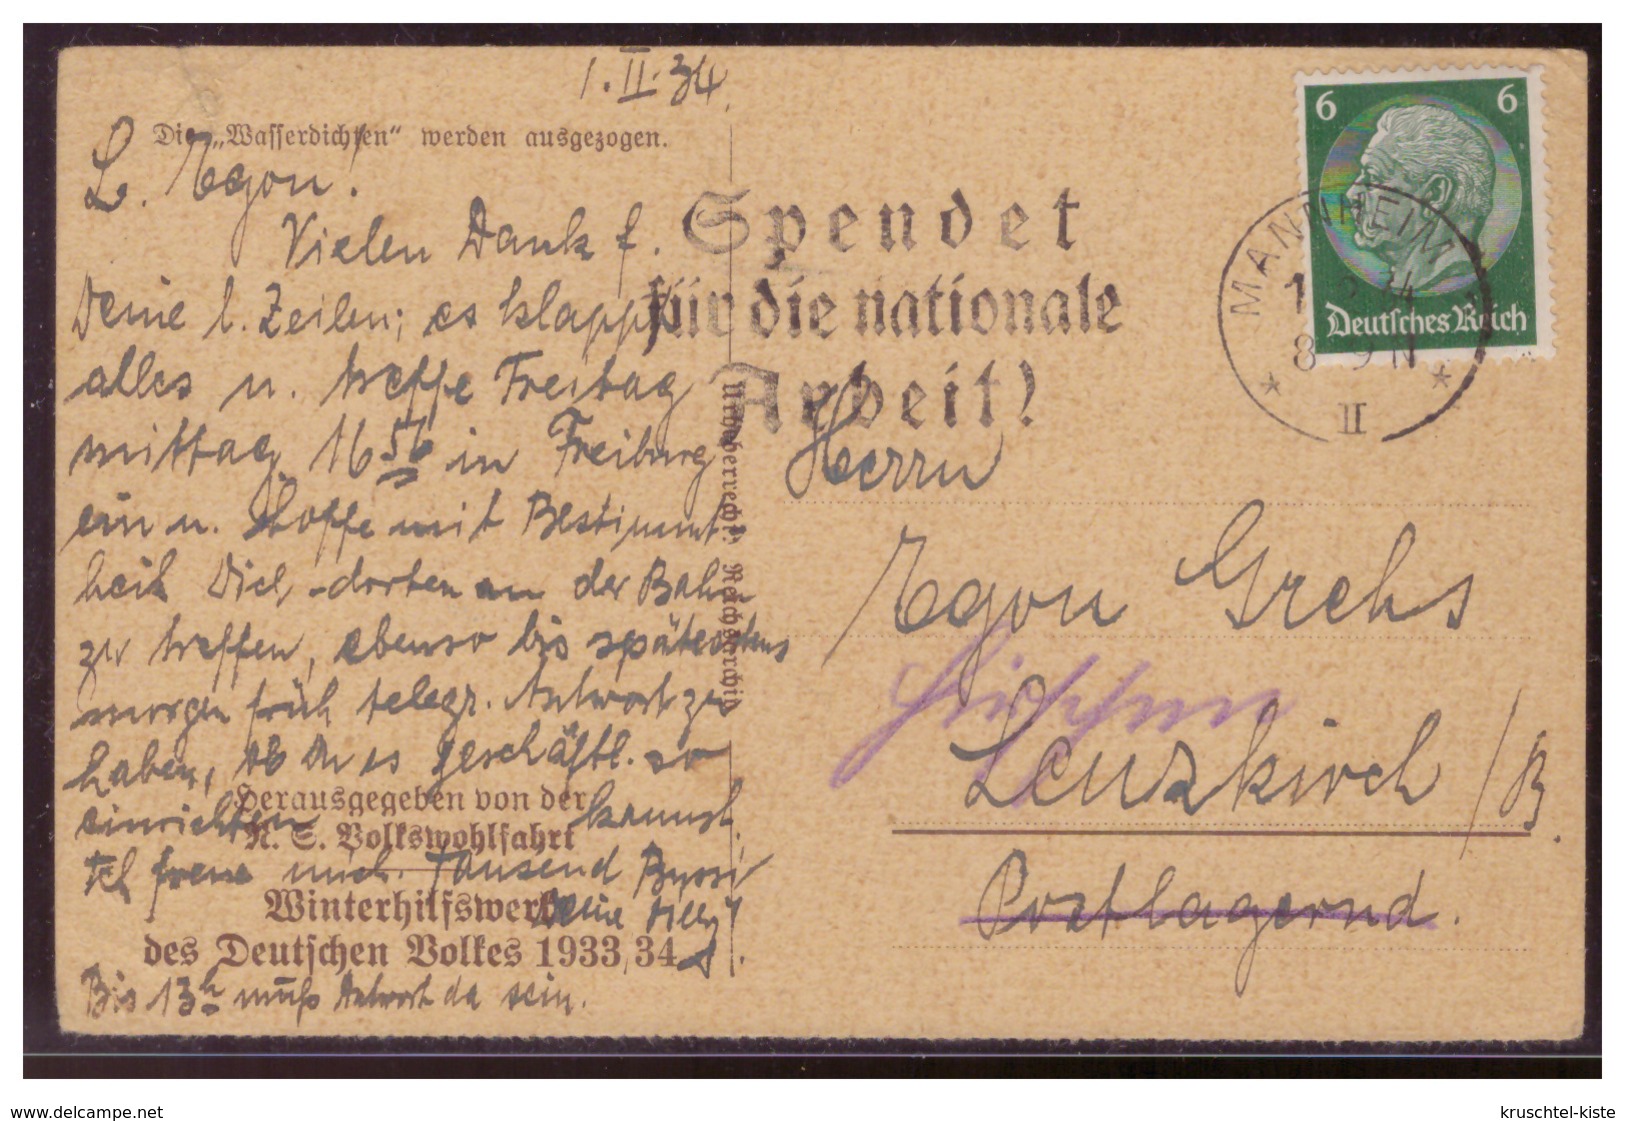 1. II. 34.
Die „Wasserdichten" werden ausgezogen.
L. Egon!
Vielen Dank f.
Deine l. Zeilen; es klappt
alles u. treffe Freitag
mittag 16 56 in Freiburg
ein u. hoffe mit Bestimmt-
heit Dich dorten an der Bahn
zu treffen, ebenso bis spätestens
morgen früh telegr. Antwort zu
haben, ob Du es geschäftl. so
einrichten kannst.
Ich freue mich. Tausend Bussi
Deine Tilly
Bis 13h muß Antwort da sein.
Herausgegeben von der
N. S. Volkswohlfahrt
Winterhilfswerk
des Deutschen Volkes 1933/34
Urheberrecht: Reichs
Spendet
für die nationale
Arbeit!
6 6
Deutsches Reich
MANNHEIM
34
8-9 N
II
Herrn
Egon Grehs
Lenzkirch / B.
Postlagernd.
www.delcampe.net
kruschtel-kiste